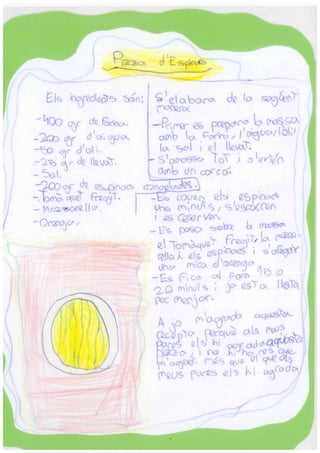 Pizza d'Espinacs
Els ingredients són:
-400 gr de farina.
-200 gr d'aigua
-50 gr d'oli.
-25 gr de llevat.
-Sal.
-200 gr de espinacs congelades.
-Tomàquet Fregit.
-Mozzarella
-Orenga.
S'elabora de la següent
manera:
-Primer es prepara la massa
amb la farina, l'aigua, l'oli,
la sal i el llevat.
-S'amassa Tot i s'estén
amb un corró.
-Es couen els espinacs
uns minuts, s'escorren
i es reserven.
-Es posa sobre la massa
el Tomàquet Fregit, la mozza-
rella i els espinacs i s'afegeix
una mica d'orenga
-Es Fica al Forn 18 o
20 minuts i ja està llesta
per menjar.
A jo m'agrada aquesta
recepta perquè als meus
pares els hi agrada aquesta
pizza, i no hi ha res que
m'agradi més que el que als
meus pares els hi agrada